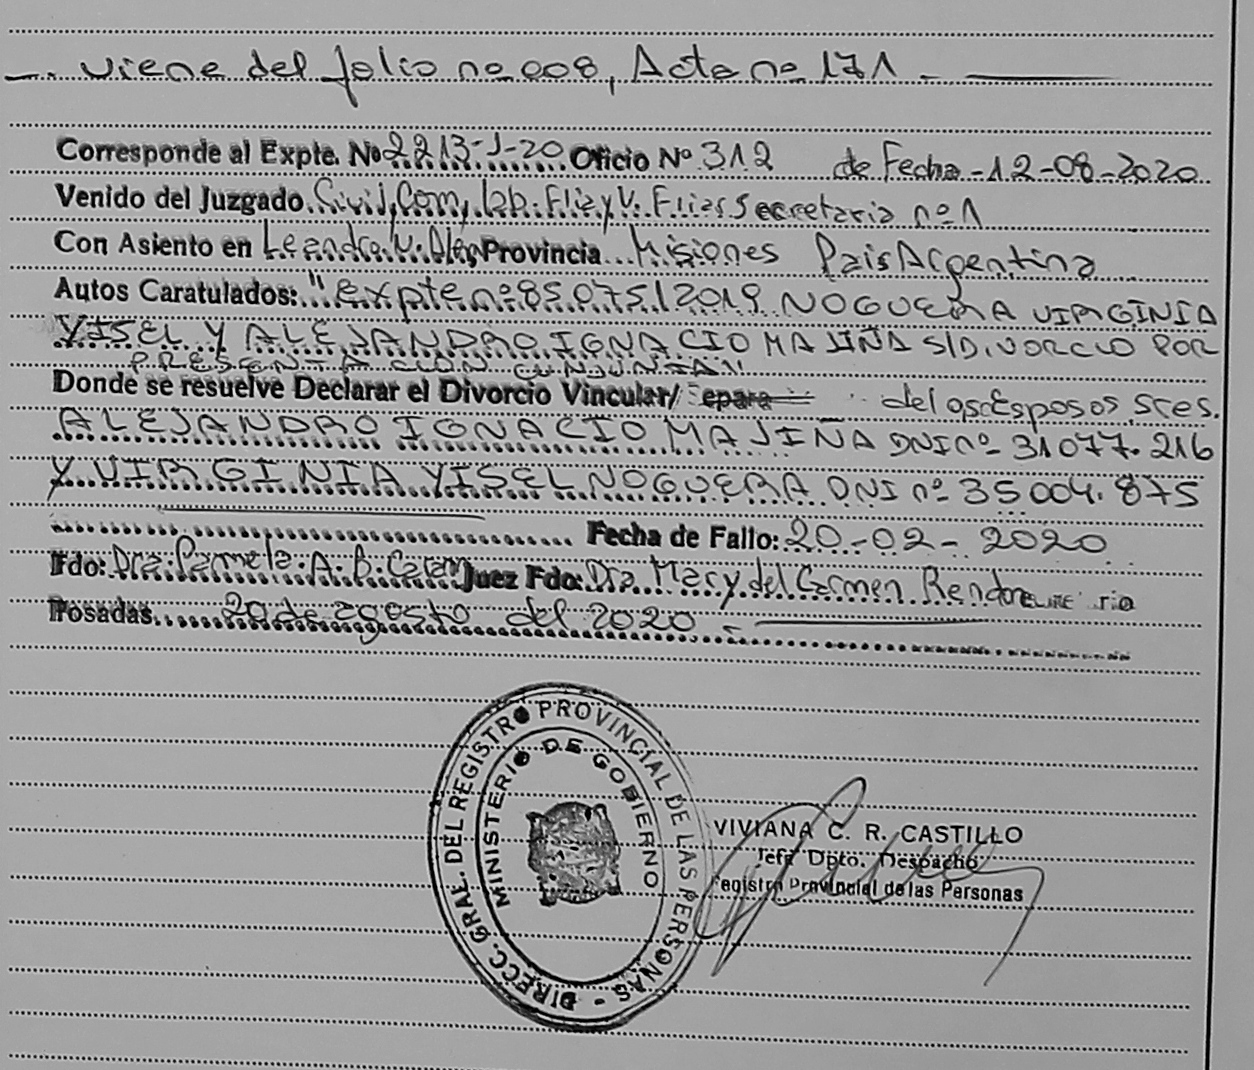 —. viene del folio nº 008, Acta nº 171 . —
Corresponde al Expte. Nº 2213-J-20 Oficio Nº 312 de Fecha - 12-08-2020
Venido del Juzgado Civil, Com, lab. Flia y V. Flias Secretaria nº 1
Con Asiento en Leandro N. Alem Provincia Misiones Pais Argentina
Autos Caratulados: "Expte nº 85075/2019 NOGUERA VIRGINIA
YISEL Y ALEJANDRO IGNACIO MAJIÑA S/DIVORCIO POR
PRESENTACION CONJUNTA"
Donde se resuelve Declarar el Divorcio Vincular/ Separa de los Esposos, Sres.
ALEJANDRO IGNACIO MAJIÑA DNI nº 31077.216
Y VIRGINIA YISEL NOGUERA DNI nº 35004.875
Fecha de Fallo: 20-02-2020
Fdo: Dra. Pamela A. B. Juez Fdo: Dra. Mary del Carmen Rendon
Posadas 20 de agosto del 2020 . —
DIRECC. GRAL. DEL REGISTRO PROVINCIAL DE LAS PERSONAS -
MINISTERIO DE GOBIERNO
VIVIANA C. R. CASTILLO
Jefa Dpto. Despacho
Registro Provincial de las Personas